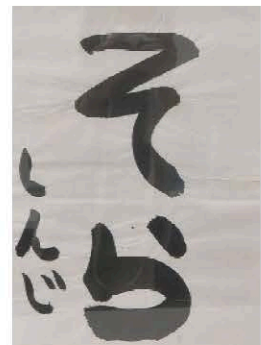 そら
しんじ